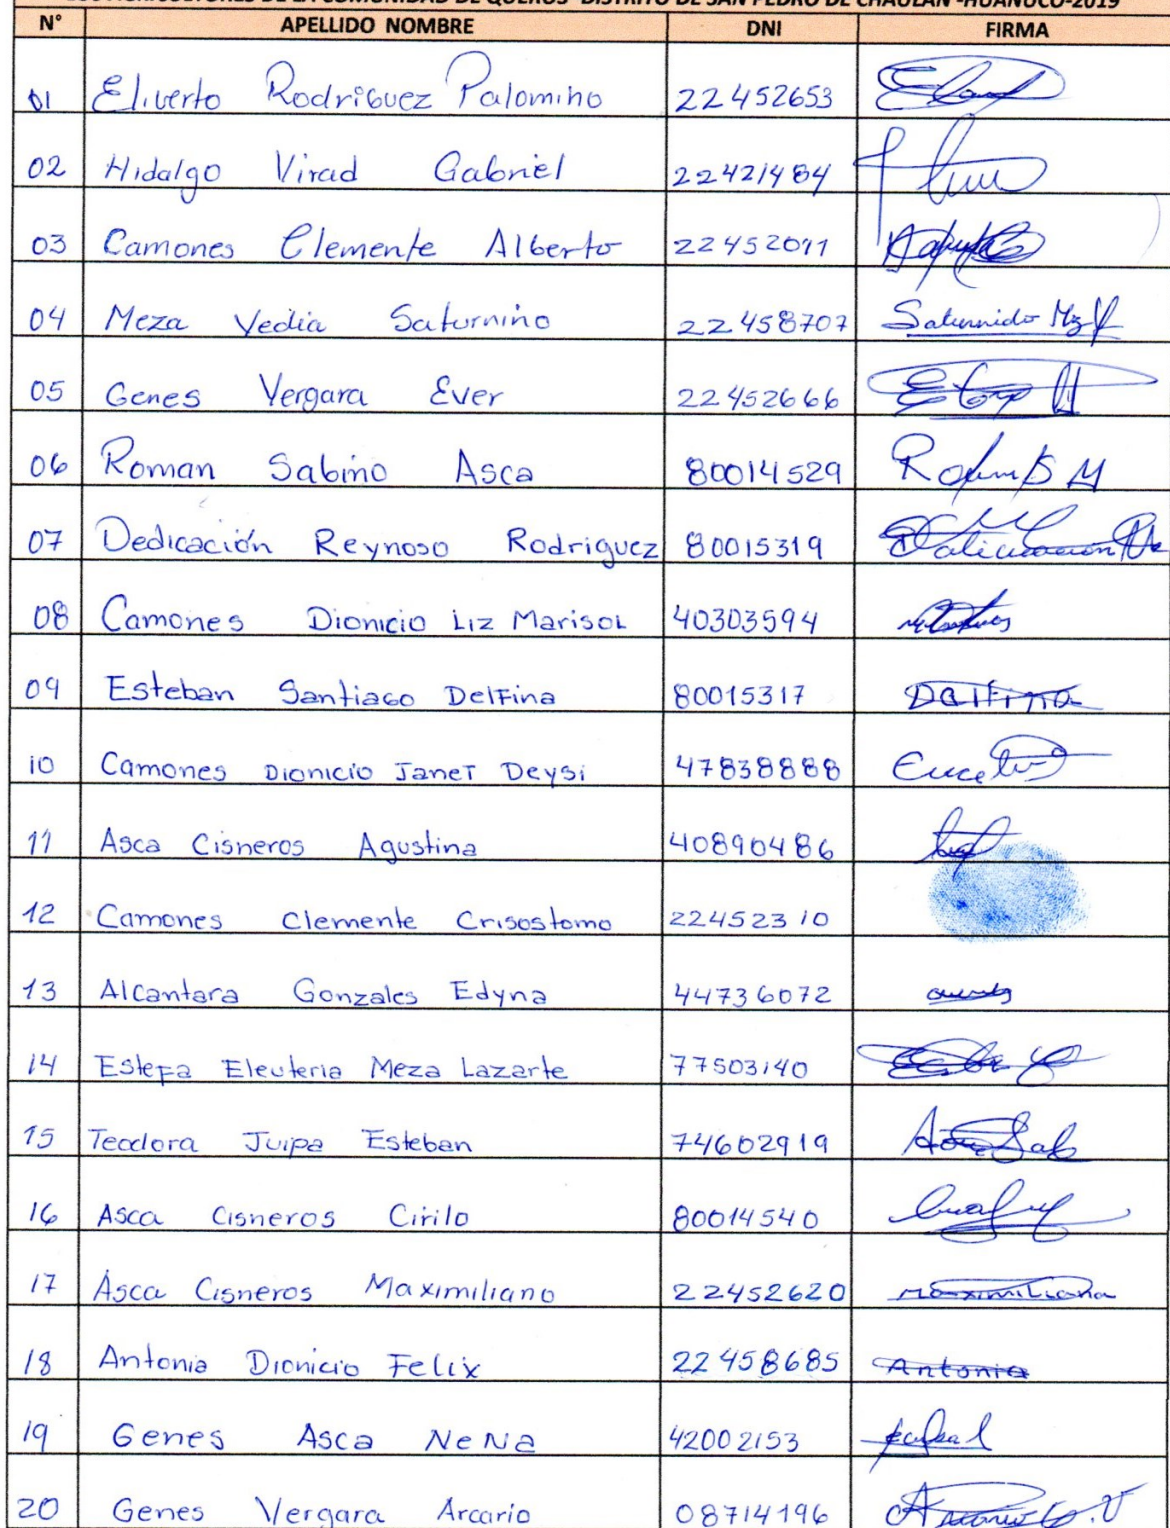 AGRICULTORES DE LA COMUNIDAD DE QUEROS- DISTRITO DE SAN PEDRO DE CHAULAN -HUANUCO-2019
N° APELLIDO NOMBRE DNI FIRMA
01 Eliverto Rodriguez Palomino 22452653
02 Hidalgo Virad Gabriel 22421484
03 Camones Clemente Alberto 22452011
04 Meza Vedia Saturnino 22458707 Saturnido Mz
05 Genes Vergara Ever 22452666
06 Roman Sabino Asca 80014529
07 Dedicación Reynoso Rodriguez 80015319
08 Camones Dionicio Liz Marisol 40303594
09 Esteban Santiago Delfina 80015317 Dalfina
10 Camones Dionicio Janet Deysi 47838888
11 Asca Cisneros Agustina 40890486
12 Camones Clemente Crisostomo 22452310
13 Alcantara Gonzales Edyna 44736072
14 Estefa Eleuteria Meza Lazarte 77503140
15 Teodora Juipa Esteban 74602919
16 Asca Cisneros Cirilo 80014540
17 Asca Cisneros Maximiliano 22452620 Maximiliana
18 Antonia Dionicio Felix 22458685 Antonia
19 Genes Asca NeNa 42002153
20 Genes Vergara Arcario 08714196